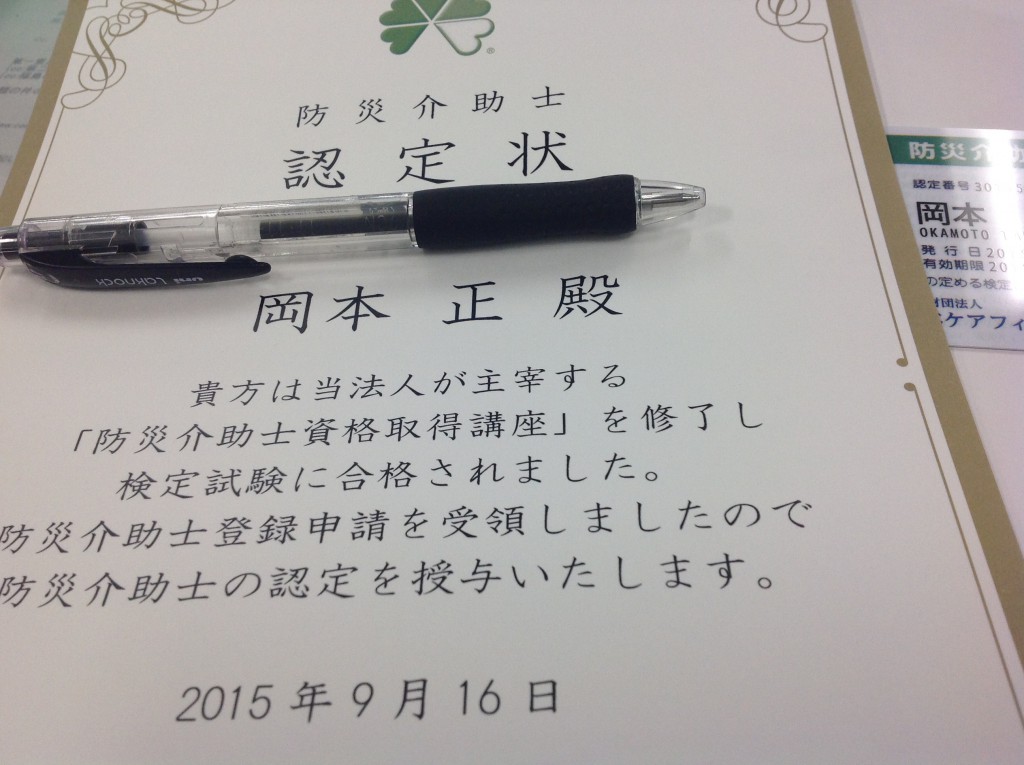 防災介助士
認定状
uni Laknock
岡本 正 殿
貴方は当法人が主宰する
「防災介助士資格取得講座」を修了し
検定試験に合格されました。
防災介助士登録申請を受領しましたので
防災介助士の認定を授与いたします。
2015年9月16日
防災介助
認定番号 30
岡本
OKAMOTO
発行日 20
有効期限 20
の定める検定
財団法人
ケアフィ